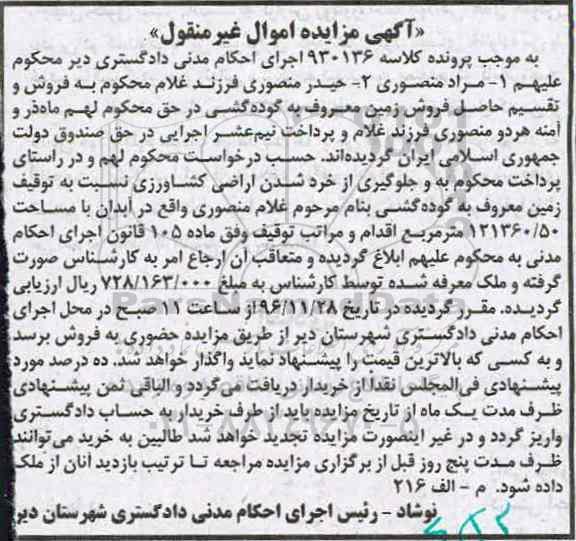 «آگهی مزایده اموال غیرمنقول»
به موجب پرونده کلاسه ۹۳۰۱۳۶ اجرای احکام مدنی دادگستری دیر محکوم
علیهم ۱- مراد منصوری ۲- حیدر منصوری فرزند غلام محکوم به فروش و
تقسیم حاصل فروش زمین معروف به گوده‌گشی در حق محکوم لهم ماه‌ذر و
آمنه هردو منصوری فرزند غلام و پرداخت نیم‌عشر اجرایی در حق صندوق دولت
جمهوری اسلامی ایران گردیده‌اند. حسب درخواست محکوم لهم و در راستای
پرداخت محکوم به و جلوگیری از خرد شدن اراضی کشاورزی نسبت به توقیف
زمین معروف به گوده‌گشی بنام مرحوم غلام منصوری واقع در آبدان با مساحت
۱۲۱۳۶۰/۵۰ مترمربع اقدام و مراتب توقیف وفق ماده ۱۰۵ قانون اجرای احکام
مدنی به محکوم علیهم ابلاغ گردیده و متعاقب آن ارجاع امر به کارشناس صورت
گرفته و ملک معرفه شده توسط کارشناس به مبلغ ۷۲۸/۱۶۳/۰۰۰ ریال ارزیابی
گردیده. مقرر گردیده در تاریخ ۹۶/۱۱/۲۸ از ساعت ۱۱ صبح در محل اجرای
احکام مدنی دادگستری شهرستان دیر از طریق مزایده حضوری به فروش برسد
و به کسی که بالاترین قیمت را پیشنهاد نماید واگذار خواهد شد. ده درصد مورد
پیشنهادی فی‌المجلس نقدا از خریدار دریافت می‌گردد و الباقی ثمن پیشنهادی
ظرف مدت یک ماه از تاریخ مزایده باید از طرف خریدار به حساب دادگستری
واریز گردد و در غیر اینصورت مزایده تجدید خواهد شد طالبین به خرید می‌توانند
ظرف مدت پنج روز قبل از برگزاری مزایده مراجعه تا ترتیب بازدید آنان از ملک
داده شود. م - الف ۲۱۶
نوشاد - رئیس اجرای احکام مدنی دادگستری شهرستان دیر